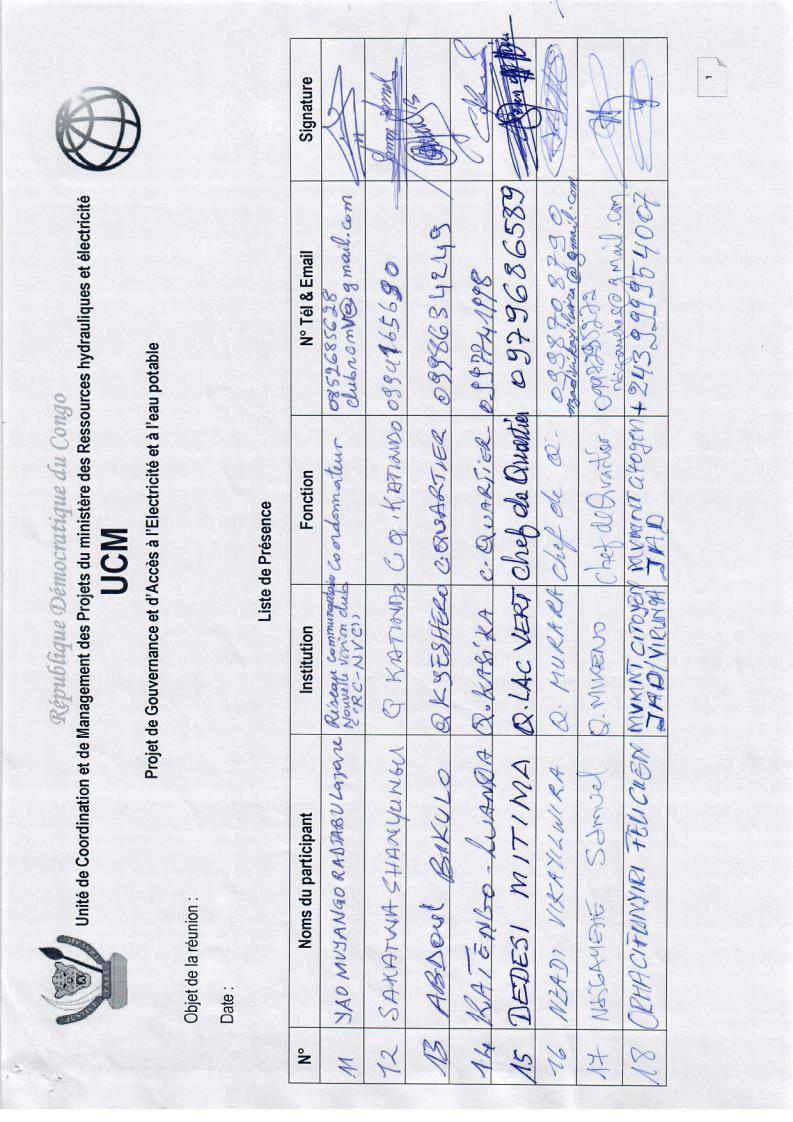 République Démocratique du Congo
Unité de Coordination et de Management des Projets du ministère des Ressources hydrauliques et électricité
UCM
Projet de Gouvernance et d'Accès à l'Electricité et à l'eau potable
Objet de la réunion :
Date :
Liste de Présence
N° Noms du participant Institution Fonction N° Tél & Email Signature
11 YAO MUYANGO RADJABU Lazare Réseau Communautaire Nouvelle vision club "RC-NVC" Coordonnateur 0852685628
12 SAKATWA SHANYUNGU Q KATINDO C.Q. KATINDO
13 ABDOUL BAKULO Q KYESHERO C.QUARTIER 0998634249
14 KATEMBO-LUANDA Q. KASIKA C.QUARTIER
15 DEDESI MITIMA Q. LAC VERT Chef de Quartier 0979686589
16 NZADI VIRAYLWIRA Q. MURARA Chef de Q. 0998708790
17 Samuel Q. MIKENO Chef de Quartier
18 MVMNT CITOYEN JAD/VIRUNGA MVMNT CITOYEN JAD +243999954007
1